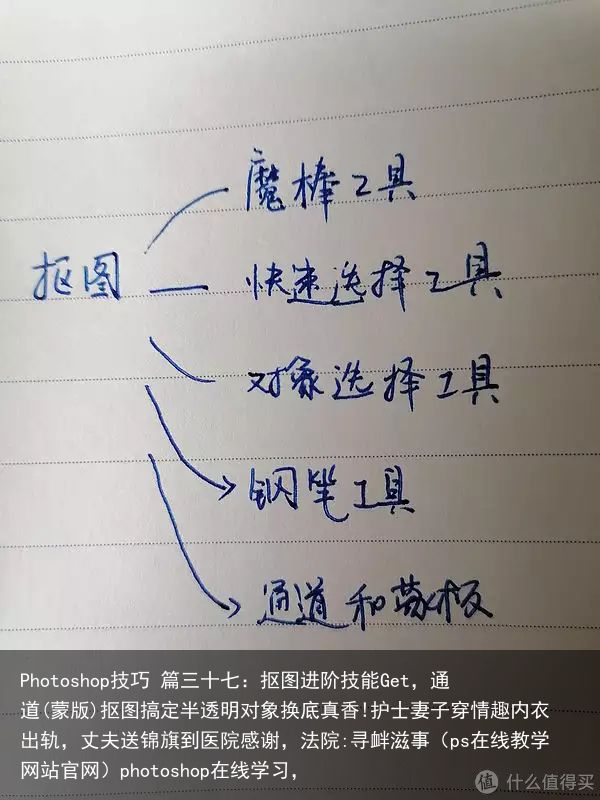 魔棒工具
抠图
快速选择工具
对象选择工具
钢笔工具
通道和蒙板
Photoshop技巧 篇三十七：抠图进阶技能Get，通
道(蒙版)抠图搞定半透明对象换底真香!护士妻子穿情趣内衣
出轨，丈夫送锦旗到医院感谢，法院:寻衅滋事（ps在线教学
网站官网）photoshop在线学习，
值 什么值得买